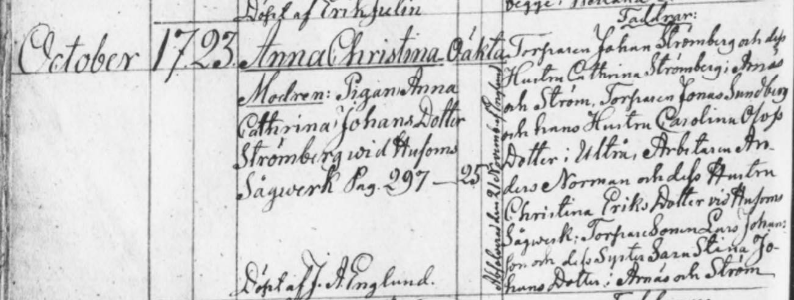 Döpt af Erik Julin
begge i
Faddrar:
October 17. 23. Anna Christina Oäkta
Modren: Pigan Anna
Cathrina Johans Dotter
Strömberg wid Husoms
Sågwerk Pag. 297 — 25
Döpt af J. A. Englund.
den 21 Novemb.
Torparen Johan Strömberg och dess
Hustru Cathrina Strömberg i Arnäs
och Ström, Torparen Jonas Sundberg
och hans Hustru Carolina Olofs
Dotter i Ultrå, Arbetaren An-
ders Norman och dess Hustru
Christina Eriks Dotter vid Husoms
Sågwerk; Torparesonen Lars Johans-
son och dess Syster Sara Stina Jo-
hans Dotter i Arnäs och Ström